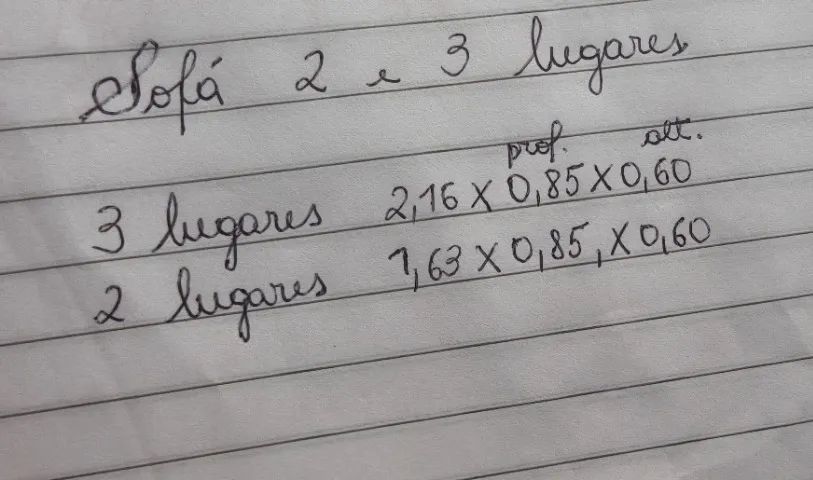 Sofá 2 e 3 lugares
prof. alt.
3 lugares 2,16 x 0,85 x 0,60
2 lugares 1,63 x 0,85, x 0,60